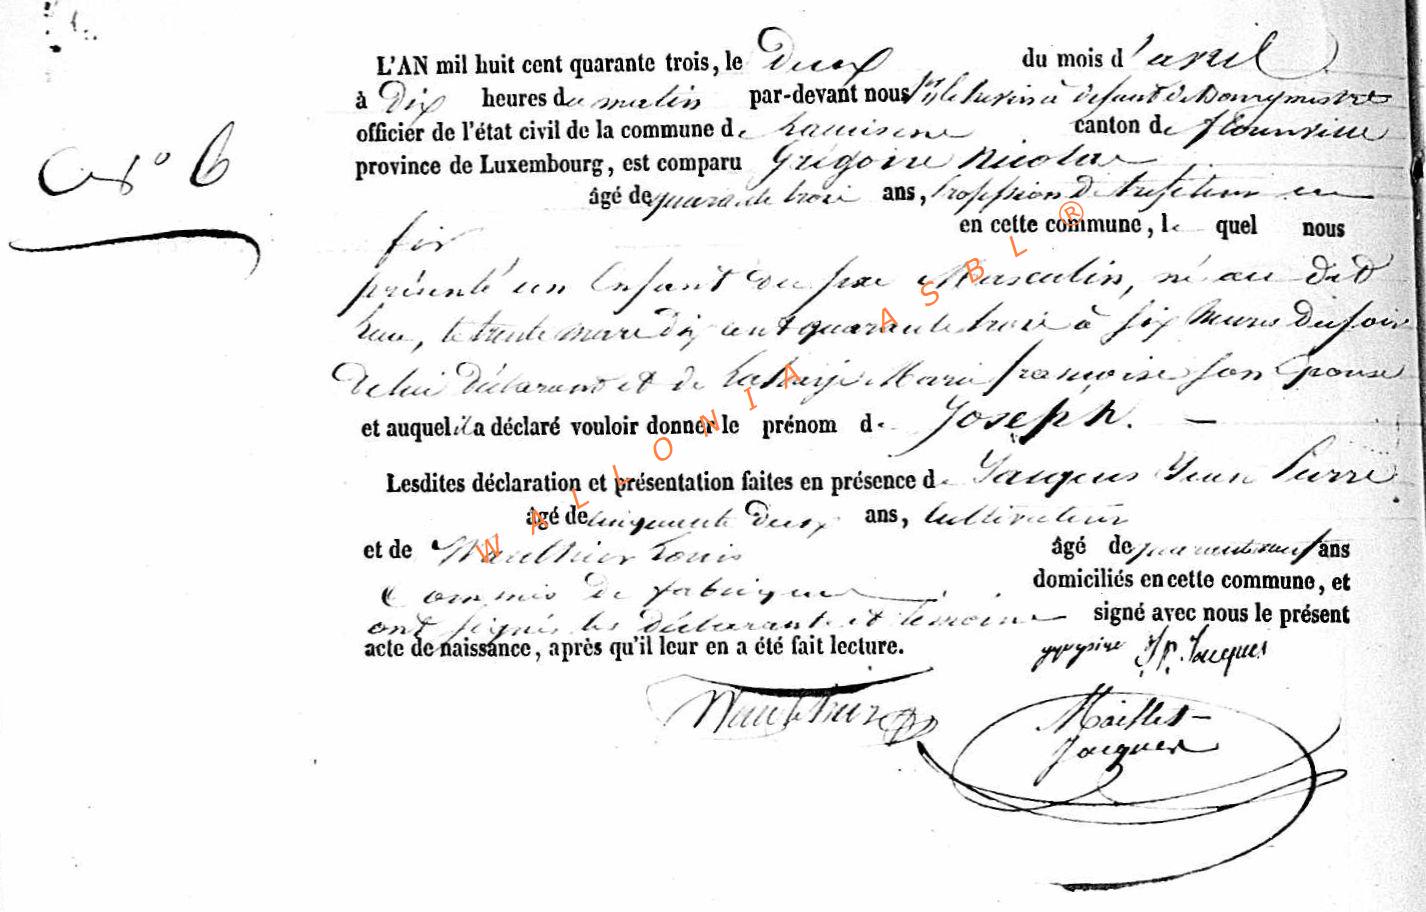 L'AN mil huit cent quarante trois, le Deux du mois d'avril
à Dix heures du matin par-devant nous échevin à défaut de Bourgmestre
officier de l'état civil de la commune de canton de florenville
province de Luxembourg, est comparu Grégoire Nicolas
N° 6
âgé de quarante trois ans, profession de en
fer en cette commune, le quel nous
présenté un Enfant du sexe Masculin, né au dit
lieu, le trente mars dix cent quarante trois à six heures du soir
de lui déclarant et de Marie françoise son Epouse
et auquel il a déclaré vouloir donner le prénom de Joseph. —
Lesdites déclaration et présentation faites en présence de Jacques Jean Pierre
âgé de cinquante deux ans, cultivateur
et de Wauthier Louis âgé de quarante neuf ans
Commis de fabrique domiciliés en cette commune, et
ont signés les déclarant et témoins signé avec nous le présent
acte de naissance, après qu'il leur en a été fait lecture.
J P. Jacques
Wauthier
Maillet-
Jacques
WALLONIA ASBL ®